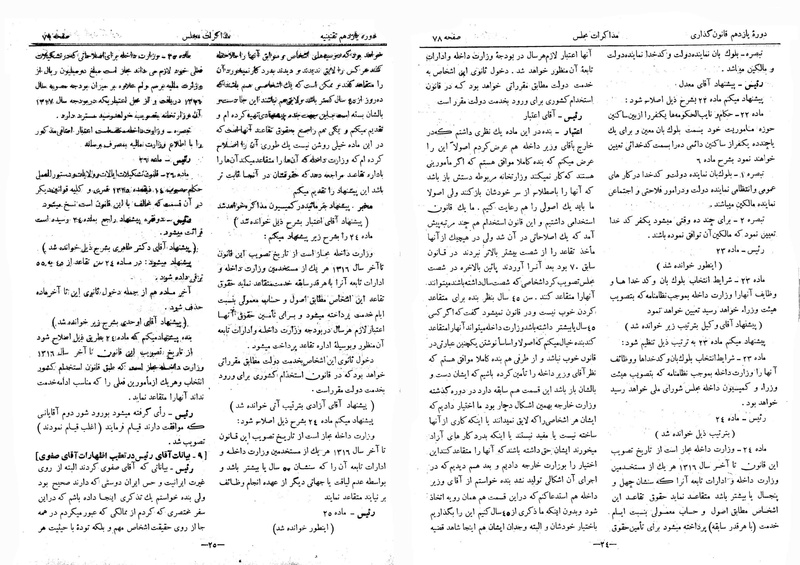 دورهٔ یازدهم قانون‌گذاری
مذاکرات مجلس
صفحه ۷۸
تبصره ـ بلوك بان نماینده دولت و کدخدا نماینده دولت
و مالکین میباشد .
رئیس ـ پیشنهاد آقای معدل .
پیشنهاد میکنم ماده ۲۲ بشرح ذیل اصلاح شود :
ماده ۲۲ ـ حکام و نایب‌الحکومه‌ها یکنفر از بین ساکنین
حوزه مأموریت خود بسمت بلوك بان معین و برای یك
یا چند ده یکنفر از ساکنین دائمی ده را بسمت کدخدائی تعیین
خواهند نمود بشرح ماده ۶
تبصره ۱ ـ بلوك بان نماینده دولت و کدخدا در کار های
عمومی و انتظامی نماینده دولت و در امور فلاحتی و اجتماعی
نماینده مالکین میباشد .
تبصره ۲ ـ برای چند ده وقتی میشود یکنفر کد خدا
تعیین نمود که مالکین آن توافق نموده باشند .
رئیس ـ ماده ۲۳
( اینطور خوانده شد )
ماده ۲۳ ـ شرایط انتخاب بلوك بان و کد خدا ها و
وظائف آنها را وزارت داخله بموجب نظامنامه که بتصویب
هیئت وزراء خواهد رسید تعیین خواهد نمود .
( پیشنهاد آقای وکیل بترتیب زیر خوانده شد )
پیشنهاد میکنم ماده ۲۳ به ترتیب ذیل تنظیم شود :
ماده ۲۳ ـ شرایط انتخاب بلوك بان و کدخداها و وظائف
آنها را وزارت داخله بموجب نظامنامه که بتصویب هیئت
وزراء و کمیسیون داخله مجلس شورای ملی خواهد رسید
رئیس ـ ماده ۲۴
( بترتیب ذیل خوانده شد )
ماده ۲۴ ـ وزارت داخله مجاز است از تاریخ تصویب
این قانون تا آخر سال ۱۳۱۶ هر یك از مستخدمین
وزارت داخله و ادارات تابعه آنرا که سنشان چهل و
پنجسال یا بیشتر باشد متقاعد نماید حقوق تقاعد این
اشخاص مطابق اصول و حساب معمولی بنسبت ایام
خدمت ( با هر قدر سابقه ) پرداخته میشود برای تأمین حقوق
آنها اعتبار لازم هر سال در بودجهٔ وزارت داخله و ادارات
تابعهٔ آن منظور خواهد شد . دخول ثانوی این اشخاص به
خدمت دولت مطابق مقرراتی خواهد بود که در قانون
استخدام کشوری برای ورود خدمت دولت مقرر است
رئیس ـ آقای اعتبار
اعتبار ـ بنده در این ماده یك نظری داشتم که در
خارج بآقای وزیر داخله هم عرض کردم اصولا این را
عرض میکنم که بنده کاملا موافق هستم که اگر مأمورینی
هستند که کار نمیکنند وزارتخانه مربوطه دستش باز باشد
که آنها را باصطلاح از سر خودشان باز کنند ولی اصولا
ما باید یك اصولی را هم رعایت کنیم . ما یك قانون
استخدامی داشتیم و این قانون استخدام هم چند مرتبه پیش
آمد که یك اصلاحاتی در آن شد ولی در هیچیك از آنها
مأخذ تقاعد را از شصت بیشتر بالاتر نبردند در قانون
سابق ۷۰ بود بعد آنرا آوردند پائین بالاخره در شصت
مجلس تصویب کرد اشخاصی که شصت سال داشته باشند میتوانند
آنها را تقاعد کنند . سن ۴۵ سال بنظر بنده برای متقاعد
کردن خوب نیست و در قانون نمیشود گفت که اگر کسی
۴۵ سال یا بیشتر داشته باشد وزارت داخله میتواند آنها را متقاعد
کند بنده خیال میکنم که اصولا و اساساً نوشتن یکچنین عبارتی در
قانون خوب نباشد و از طرفی هم بنده کاملا موافق هستم که
نظر آقای وزیر داخله را تأمین کرده باشیم که ایشان دست و
بالشان باز باشد این قسمت هم سابقه دارد در دوره گذشته
وزارت خارجه بهمین اشکال دچار بود ما اختیار دادیم که
ایشان هر اشخاصی را که لایق نمیدانند یا اینکه کاری از آنها
ساخته نیست یا مفید نیستند و یا اینکه بدرد کار های آزاد
میخورند ایشان حق داشته باشند که آنها را متقاعد کنند این
اختیار را بوزارت خارجه دادیم و بعد هم دیدیم که در
اجرای آن اشکالی تولید نشد بنده خواستم از آقای وزیر
داخله هم استدعا کنم که در این قسمت هم همان رویه اتخاذ
شود و بدون اینکه ما ذکری از ۴۵ سال کنیم این را بگذاریم
باختیار خودشان و البته وجدان ایشان هم اینجا شاهد قضیه
ـ۲۴ـ
دوره یازدهم تقنینیه
مذاکرات مجلس
صفحه ۷۹
تقدیم میکنم و یکی هم راجع بحقوق تقاعد آنها است که
در این ماده خیلی روشن نیست یك طوری آن را اصلاح
کرده‌ام که وزارت داخله که آنها را متقاعد میکند آنها را
باداره تقاعد مراجعه دهد که حقوقشان در آنجا ثابت تر
باشد این پیشنهاد را تقدیم میکنم
مخبر ـ پیشنهاد بفرمائید در کمیسیون مذاکره خواهد شد
( پیشنهاد آقای اعتبار بشرح ذیل خوانده شد )
ماده ۲۴ را بشرح زیر پیشنهاد میکنم :
وزارت داخله مجاز است از تاریخ تصویب این قانون
تا آخر سال ۱۳۱۶ هر یك از مستخدمین وزارت داخله و
ادارات تابعه آنرا با هر قدر سابقه خدمت متقاعد نماید حقوق
تقاعد این اشخاص مطابق اصول و حساب معمولی بنسبت
ایام خدمت پرداخته میشود و برای تأمین حقوق آنها
اعتبار لازم هر سال در بودجه وزارت داخله و ادارات تابعه
آن منظور و بوسیلهٔ اداره تقاعد پرداخت میشود .
دخول ثانوی این اشخاص بخدمت دولت مطابق مقرراتی
خواهد بود که در قانون استخدام کشوری برای ورود
خدمت دولت مقرر است .
( پیشنهاد آقای آزادی بترتیب آتی خوانده شد )
پیشنهاد میکنم ماده ۲۴ بشرح ذیل اصلاح شود .
وزارت داخله مجاز است از تاریخ تصویب این قانون
تا آخر سال ۱۳۱۶ هر یك از مستخدمین وزارت داخله و
ادارات تابعه آن را که سنشان ۵۵ سال یا بیشتر باشد و
بواسطه عدم لیاقت یا جهاتی دیگر از عهده انجام وظائف
بر نیایند متقاعد نماید
رئیس ـ ماده ۲۵
( اینطور خوانده شد )
خدمت نماید .
رئیس ـ ماده ۲۶
( پیشنهاد آقای دکتر طاهری بشرح ذیل خوانده شد )
پیشنهاد میشود : در ماده ۲۴ سن تقاعد از ۴۵ به ۵۵
ترقی داده شود .
آخر ماده هم از جمله دخول ثانوی این تا آخر ماده
حذف شود .
( پیشنهاد آقای اوحدی بشرح زیر خوانده شد )
بنده پیشنهاد میکنم که ماده ۲۴ بطریق ذیل اصلاح شود
از تاریخ تصویب این قانون تا آخر سال ۱۳۱۶
وزارت داخله مجاز است که طبق قانون استخدام کشور
انتخاب و هر یك از مأمورین فعلی را که مناسب ادامه خدمت
نداند آنها را متقاعد نماید .
رئیس ـ رأی گرفته میشود بورود شور دوم آقایانی
که موافقت دارند قیام فرمایند ( اغلب قیام نمودند )
تصویب شد .
[ ۹ ـ بیانات آقای رئیس در تعقیب اظهارات آقای صفوی ]
رئیس ـ بیاناتی که آقای صفوی کردند البته از روی
غیرت ایرانیت و حس ایران دوستی که دارند صحیح بود
ولی بنده خواستم یك تذکری اینجا داده باشم که در این
سفر مختصری که کردم از ممالکی که عبور میکردم در همه
جا از روی حقیقت اشخاص مهم و بلکه تودهٔ با حیثیت هر
ـ۲۵ـ